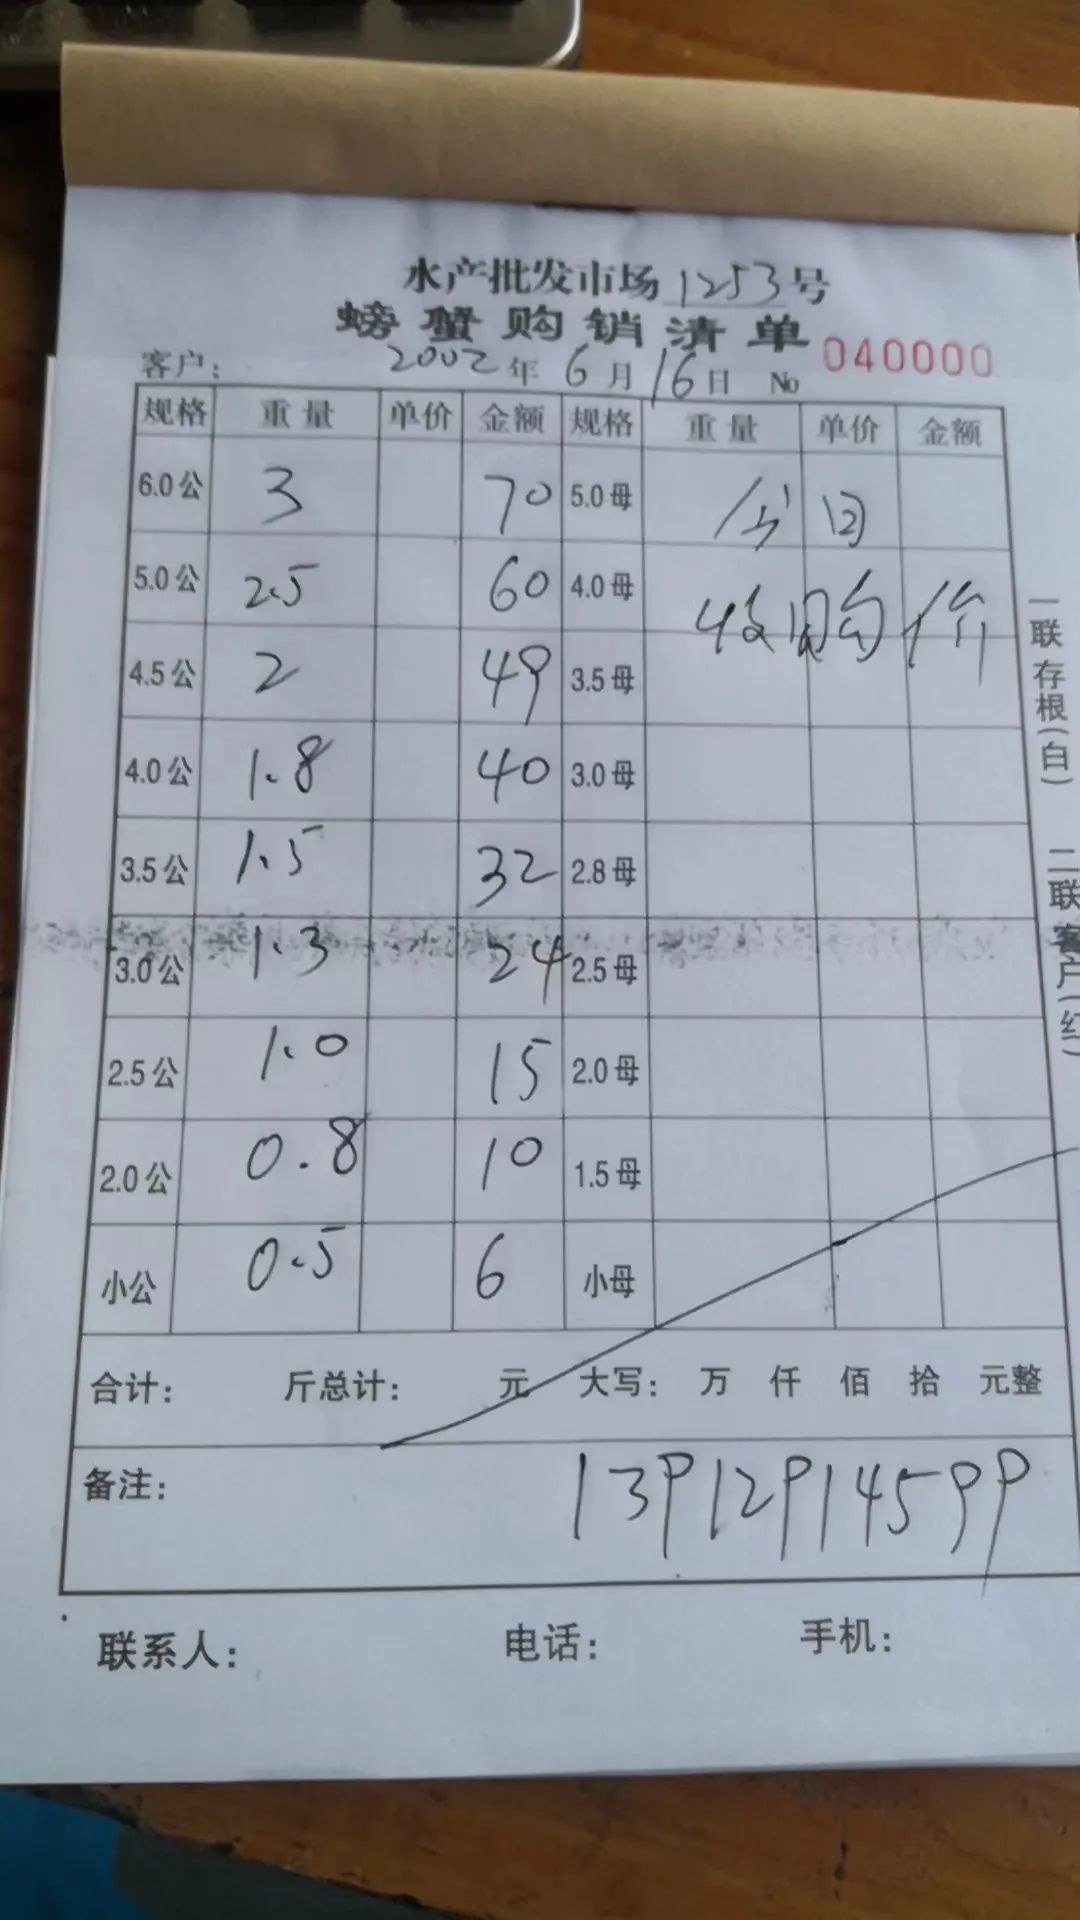 水产批发市场1253号
螃蟹购销清单
客户: 2002年6月16日 No 040000
规格 重量 单价 金额 规格 重量 单价 金额
6.0公 3 70 5.0母 今日
5.0公 2.5 60 4.0母 收购价
4.5公 2 49 3.5母
4.0公 1.8 40 3.0母
3.5公 1.5 32 2.8母
3.0公 1.3 24 2.5母
2.5公 1.0 15 2.0母
2.0公 0.8 10 1.5母
小公 0.5 6 小母
合计: 斤总计: 元 大写: 万 仟 佰 拾 元整
备注: 13912914599
联系人: 电话: 手机:
一联存根(白)
二联客户(红)